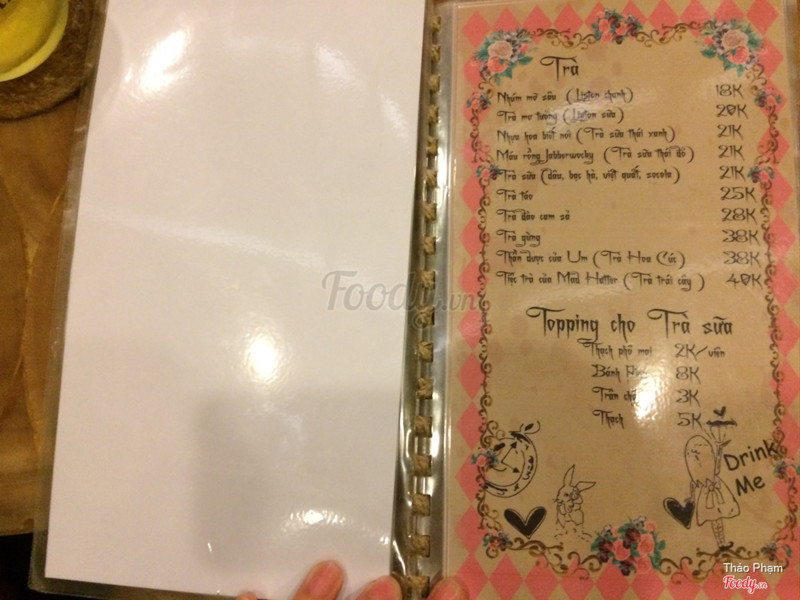 Trà
Nhúm mờ sâu (Lipton chanh) 18K
Trà mơ tưởng (Lipton sữa) 20K
Nhựa hoa biết nói (Trà sữa thái xanh) 21K
Máu rồng Jabberwocky (Trà sữa thái đỏ) 21K
Trà sữa (dâu, bạc hà, việt quất, socola) 21K
Trà táo 25K
Trà đào cam sả 28K
Trà gừng 38K
Thần dược của Um (Trà Hoa Cúc) 38K
Tiệc trà của Mad Hatter (Trà trái cây) 40K
Topping cho Trà sữa
Thạch phô mai 2K/viên
Bánh 8K
Trân 3K
Thạch 5K
Drink
Me
Foody.vn
Thảo Phạm
Foody.vn